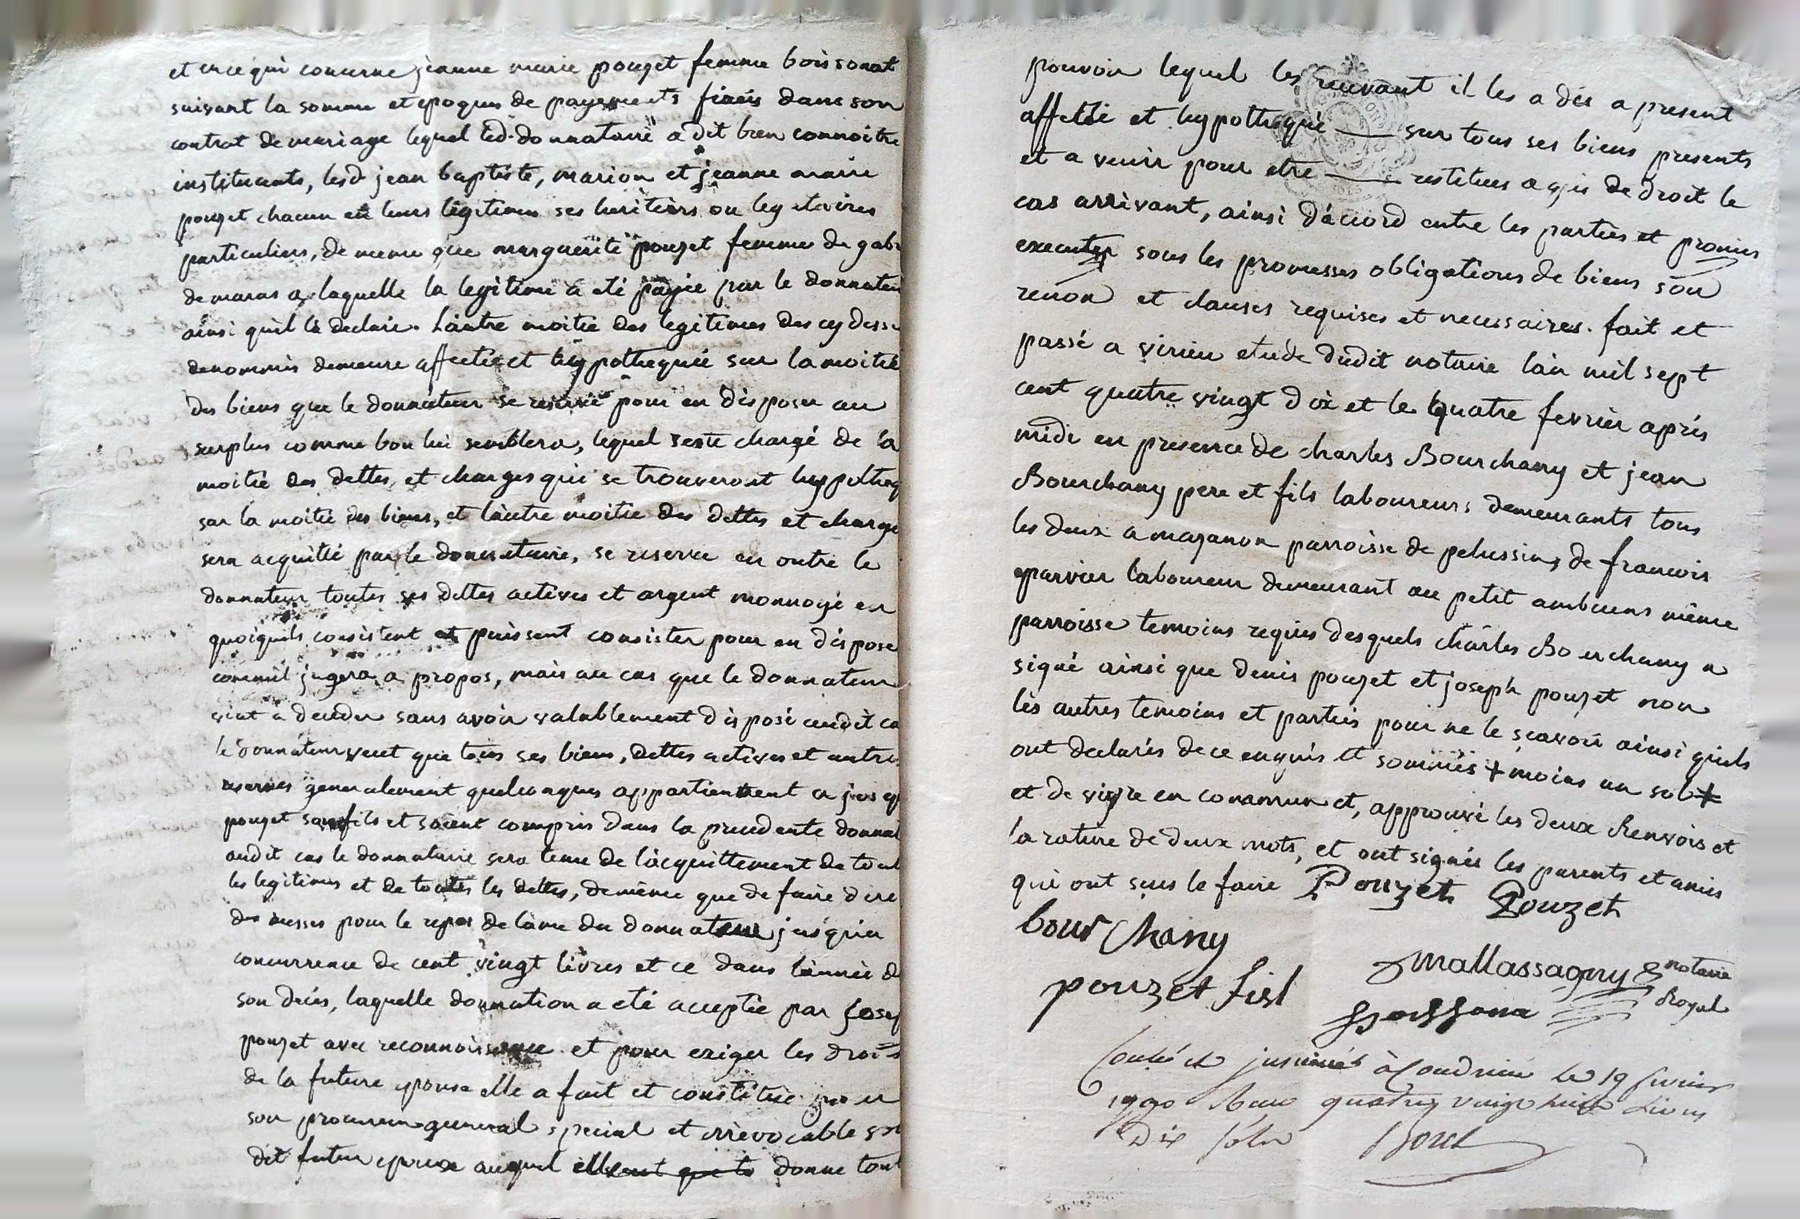 et en ce qui concerne jeanne marie pouzet femme boissonat
suivant la somme et epoques de payements fixés dans son
contrat de mariage lequel led. donnataire a dit bien connoitre
instituants, lesd jean baptiste, marion et jeanne marie
pouzet chacun en leurs legitimes ses heritiers ou legataires
particuliers, de meme que marguerite pouzet femme de gab
de maras a laquelle la legitime a eté payée par le donnateur
ainsi quil le declare. L'autre moitié des legitimes des cy dess
denommés demeure affectée et hypothequée sur la moitié
des biens que le donnateur se reserve pour en disposer au
surplus comme bon lui semblera, lequel reste chargé de la
moitié des dettes, et charges qui se trouveront hypotheq
sur la moitié des biens, et l'autre moitié des dettes et charge
sera acquitté par le donnataire, se reserve en outre le
donnateur toutes ses dettes actives et argent monnoyé en
quoiquils consistent et puissent consister pour en dispose
comme il jugera a propos, mais au cas que le donnateur
vint a deceder sans avoir valablement disposé audit ca
le donnateur veut que tous ses biens, dettes actives et autre
reserves generalement quelconques appartiennent a jos
pouzet son fils et soient compris dans la precedente donnat
audit cas le donnataire sera tenu de l'acquittement de tout
les legitimes et de toutes les dettes, de même que de faire dire
des messes pour le repos de l'ame du donnateur jusqu'en
concurrence de cent vingt livres et ce dans l'année d
son deces, laquelle donnation a eté acceptée par Josep
pouzet avec reconnoissance et pour exiger les droits
de la future epouse elle a fait et constitué pour
son procureur general special et irrevocable son
dit futur epoux auquel elle donne tout
pouvoir lequel les recevant il les a dès a present
affecté et hypothequé sur tous ses biens presents
et a venir pour etre restitues a qui de droit le
cas arrivant, ainsi d'accord entre les parties et promis
executer sous les promesses obligations de biens sou
renon et clauses requises et necessaires. fait et
passé a virieu etude dudit notaire l'an mil sept
cent quatre vingt dix et le quatre fevrier après
midi en presence de charles Bourchany et jean
Bourchany pere et fils laboureurs demeurants tous
les deux a mazanon parroisse de pelussin, de francois
parvier laboureur demeurant au petit ambuens même
parroisse temoins requis desquels charles Bourchany a
signé ainsi que denis pouzet et joseph pouzet non
les autres temoins et parties pour ne le scavoir ainsi quils
ont declarés de ce enquis et sommés + moins un sol +
et de vivre en commun et, approuvé les deux Renvois et
la rature de deux mots, et ont signés les parents et amis
qui ont sceus le faire Pouzet Pouzet
bourchany
pouzet fisl
Mallassagny notaire
Royal
Controlé et insinué à Condrieu le 19 fevrier
1790 Recu quatre vingt huit livres
dix sols